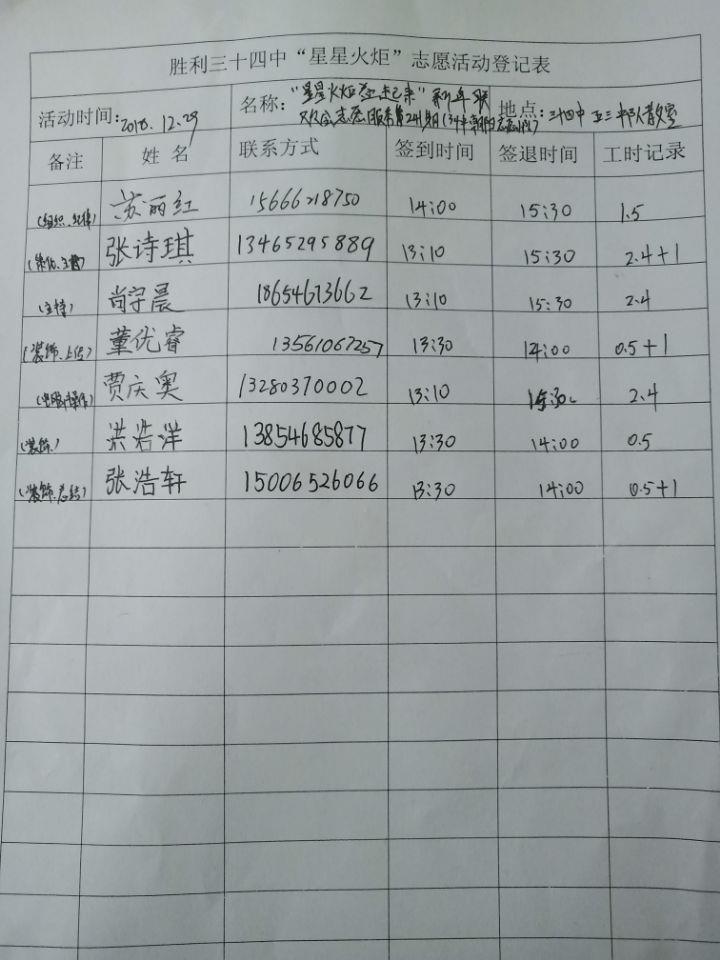 胜利三十四中“星星火炬”志愿活动登记表
活动时间：2018.12.29 名称：“星星火炬 赢未来”新年联欢会志愿服务第241期 地点：三十四中 五三中队教室
备注 姓名 联系方式 签到时间 签退时间 工时记录
(组织、纪律) 苏丽红 15666218750 14:00 15:30 1.5
张诗琪 13465295889 13:10 15:30 2.4+1
(主持) 尚宇晨 18654613662 13:10 15:30 2.4
(装饰、上传) 董优睿 13561067257 13:30 14:00 0.5+1
(电脑操作) 贾庆奥 13280370002 13:10 15:30 2.4
(装饰) 洪浩洋 13854685877 13:30 14:00 0.5
(装饰、总结) 张浩轩 15006526066 13:30 14:00 0.5+1